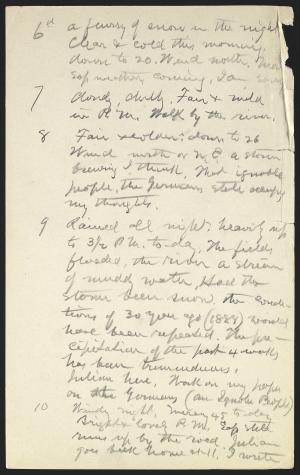 6th a flurry of snow in the night
Clear & cold this morning,
down to 20. Wind north. More
sap weather coming, I am sure
7 cloudy, chilly. Fair & mild
in P.M. Walk by the river.
8 Fair & colder: down to 26
Wind north or N.E. a storm
brewing I think. That ignoble
people, the Germans still occupy
my thoughts.
9 Rained all night: heavily up
to 3½ P.M. to-day. The fields
flooded, the river a stream
of muddy water. Had the
storm been snow, the condi-
tions of 30 years ago (1888) would
have been repeated. The pre-
cipitation of the past 4 weeks
has been tremendous.
Julian here. Work on my paper
on the Germans (An Ignoble People)
10 Windy night, mercury 45 to-day
Bright & lovely P.M. Sap still
runs up by the road. Julian
goes back home at 11. I write